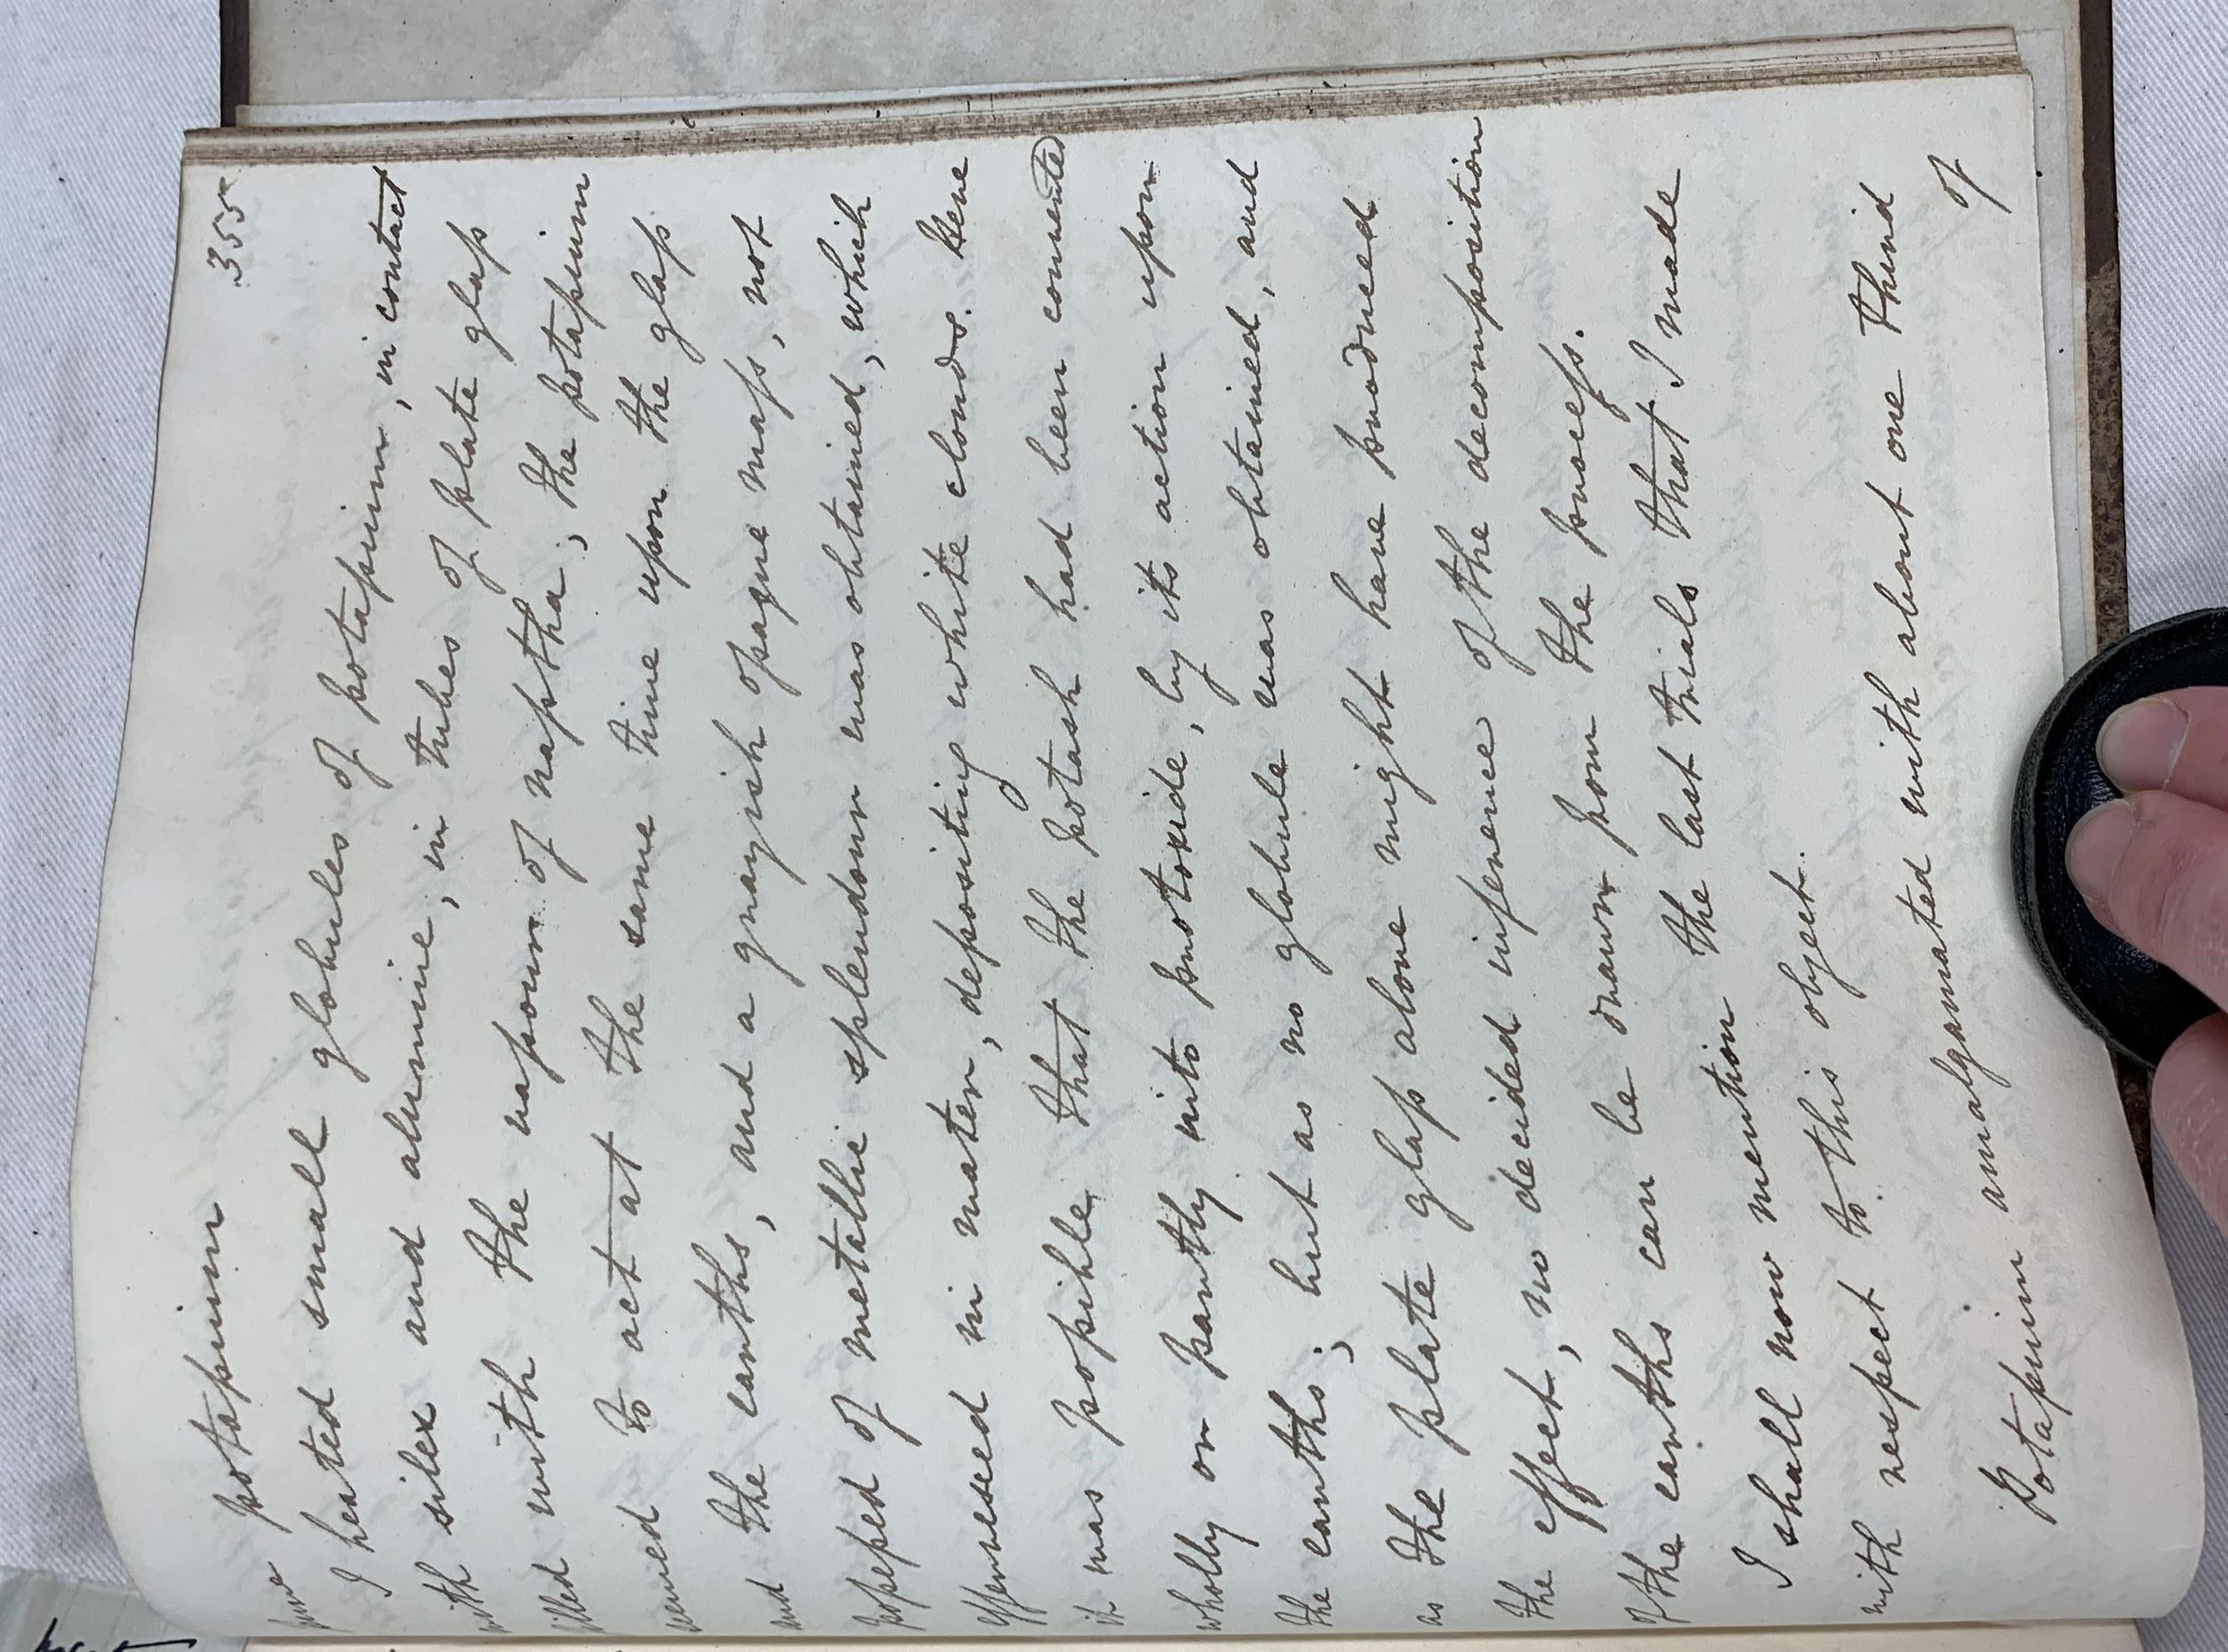 355
pure potassium
I heated small globules of potassium, in contact
with silex and alumine, in tubes of plate glass
filled with the vapour of naptha; the potassium
seemed to act at the same time upon the glass
and the earths, and a grayish opaque mass, not
possessed of metallic splendour was obtained, which
effervesced in water, depositing white clouds. Here
it was possible that the potash had been converted
wholly or partly into protoxide, by its action upon
the earths; but as no globule was obtained, and
as the plate glass alone might have produced
the effect, no decided inference of the decomposition
of the earths can be drawn from the process.
I shall now mention the last trials that I made
with respect to this object.
Potassium amalgamated with about one third
of